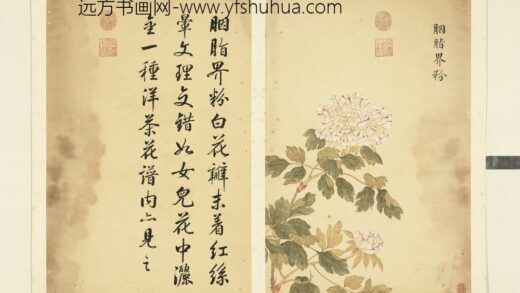 远方书画网-www.yfshuhua.com
胭脂界粉
胭脂界粉白花瓣末着紅絲
暈文理交錯如女兒花中灑
金一種洋茶花譜内亦見之